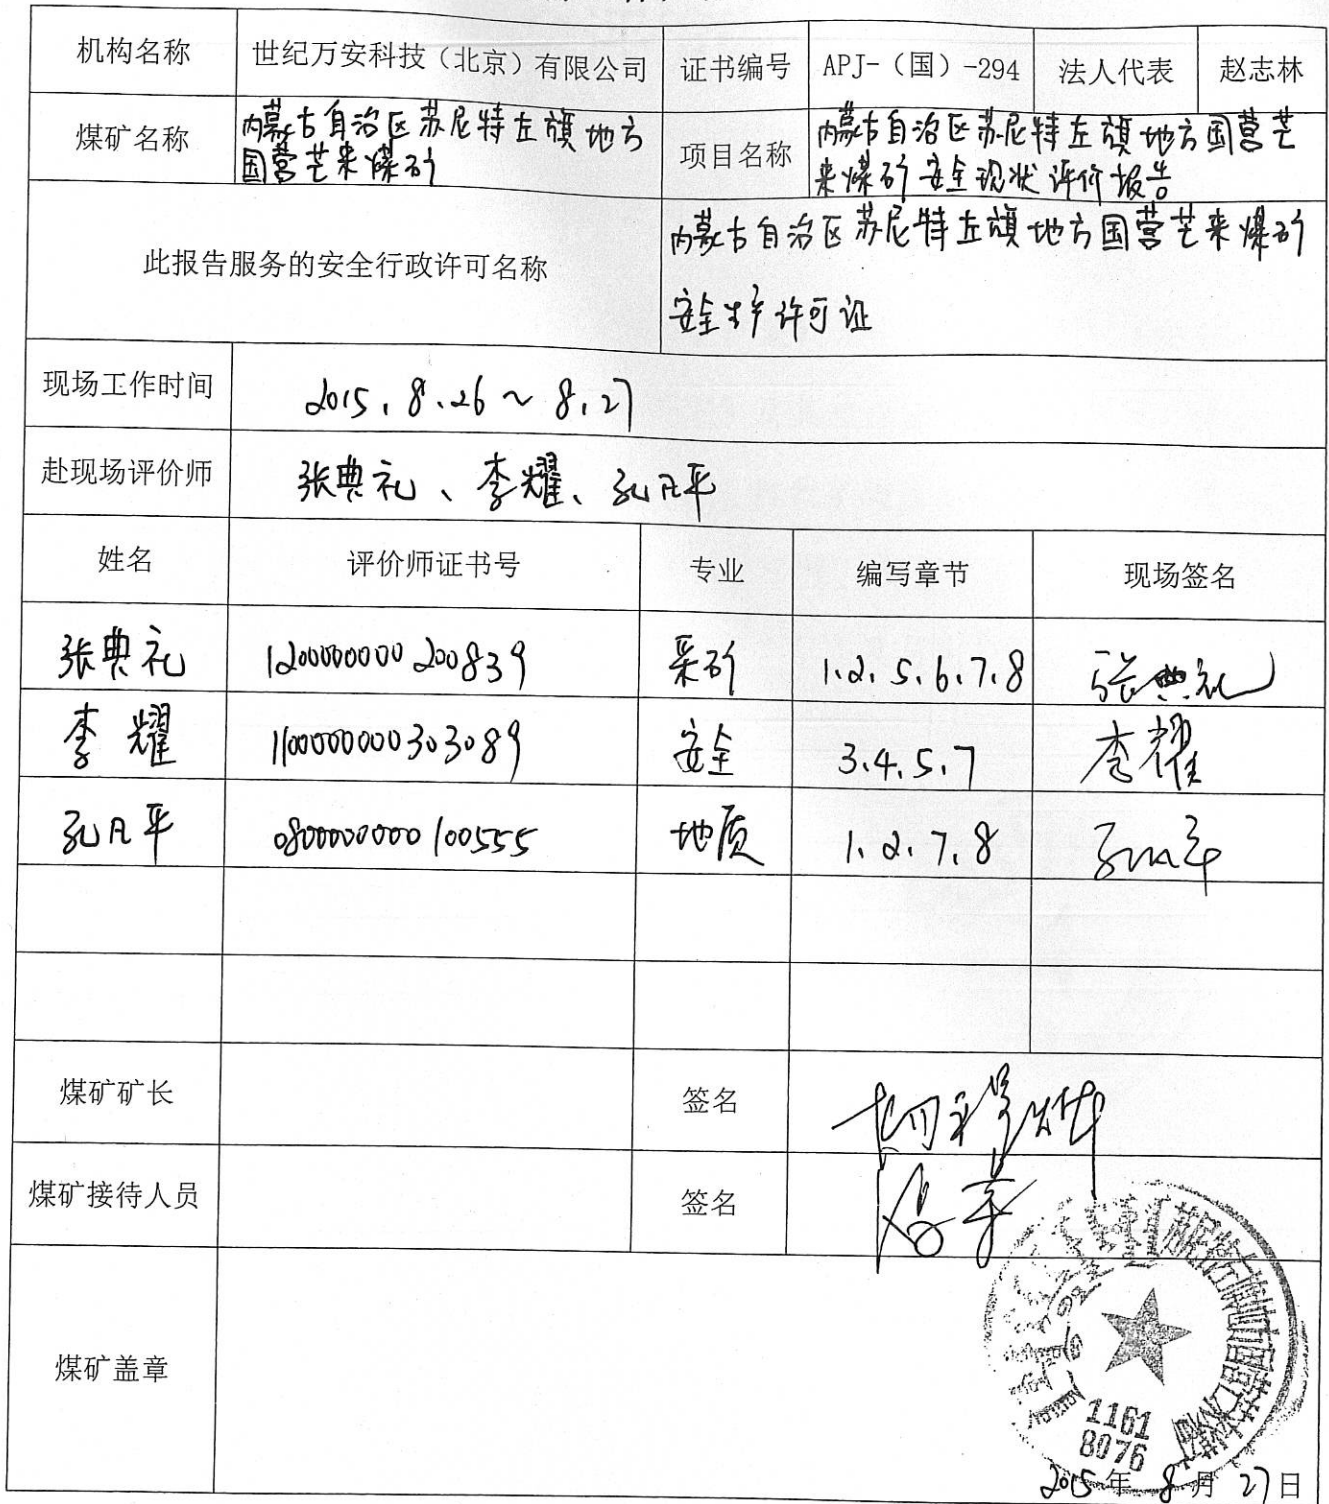 机构名称 世纪万安科技（北京）有限公司 证书编号 APJ-（国）-294 法人代表 赵志林
煤矿名称 内蒙古自治区苏尼特左旗地方
国营芒来煤矿
项目名称 内蒙古自治区苏尼特左旗地方国营芒
来煤矿安全现状评价报告
此报告服务的安全行政许可名称 内蒙古自治区苏尼特左旗地方国营芒来煤矿
安全生产许可证
现场工作时间 2015.8.26~8.27
赴现场评价师 张典礼、李耀、孔凡平
姓名 评价师证书号 专业 编写章节 现场签名
张典礼 1200000000200839 采矿 1.2.5.6.7.8 张典礼
李耀 1100000000303089 安全 3.4.5.7 李耀
孔凡平 0800000000100555 地质 1.2.7.8 孔凡平
煤矿矿长 签名
煤矿接待人员 签名
煤矿盖章
苏尼特左旗地方国营芒来煤矿
1161
8076
2015年8月27日